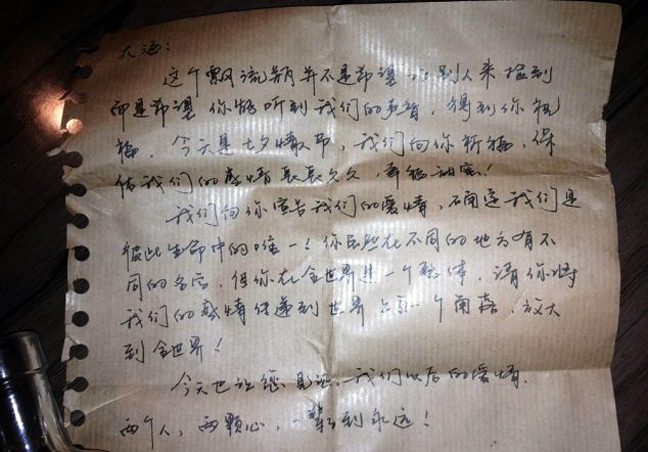 大海：
这个飘流瓶并不是希望 别人来捡到
而是希望 你能听到我们的声音，得到你祝
福，今天是七夕情人节，我们向你祈福，保
佑我们的感情长长久久，幸福甜蜜！
我们向你宣告我们的爱情，确定我们是
彼此生命中的唯一！你虽然在不同的地方有不
同的名字，但你在全世界是一个整体，请你将
我们的感情传递到世界 每一个角落，放大
到全世界！
今天也让您见证，我们以后的爱情，
两个人，两颗心，一辈子到永远！